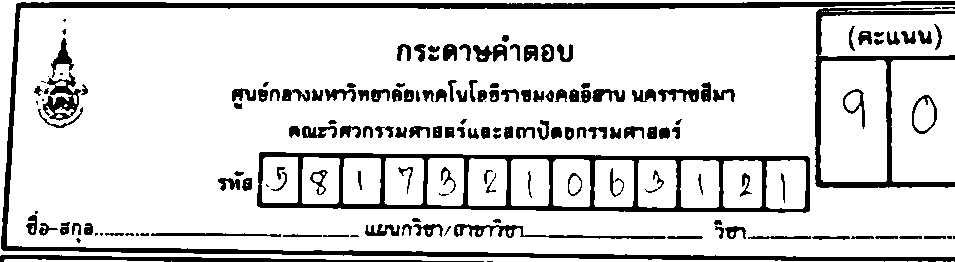 กระดาษคำตอบ
(คะแนน)
ศูนย์กลางมหาวิทยาลัยเทคโนโลยีราชมงคลอีสาน นครราชสีมา
9 0
คณะวิศวกรรมศาสตร์และสถาปัตยกรรมศาสตร์
รหัส 5 8 1 7 3 2 1 0 6 3 1 2 1
ชื่อ-สกุล.......................... แผนกวิชา/สาขาวิชา.......................... วิชา..........................